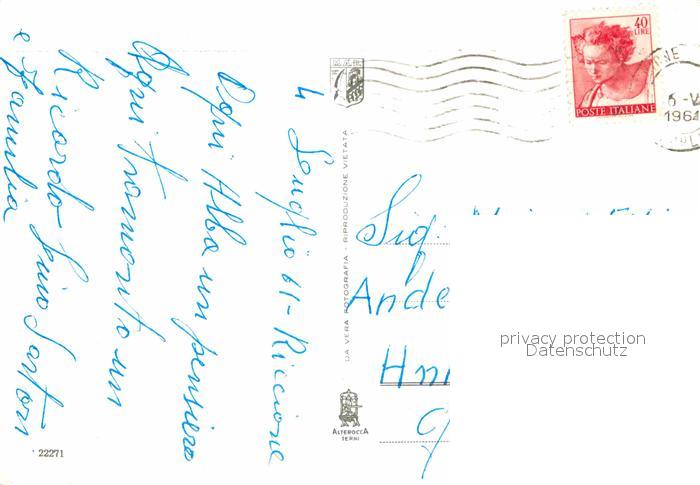 4 Luglio 61 - Riccione
Ogni Alba un pensiero
Ogni tramonto un
Ricordo Luisa
e Famiglia
DA VERA FOTOGRAFIA - RIPRODUZIONE VIETATA
ALTEROCCA
TERNI
22271
40
LIRE
POSTE ITALIANE
6 - V
1964
Sig:
Ande
privacy protection
Datenschutz